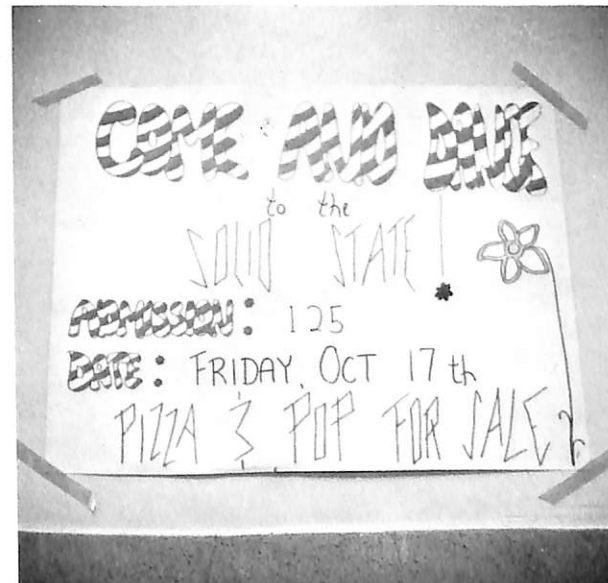 COME AND DANCE
to the
SOLID STATE!
ADMISSION: 125
DATE: FRIDAY, OCT 17th
PIZZA & POP FOR SALE